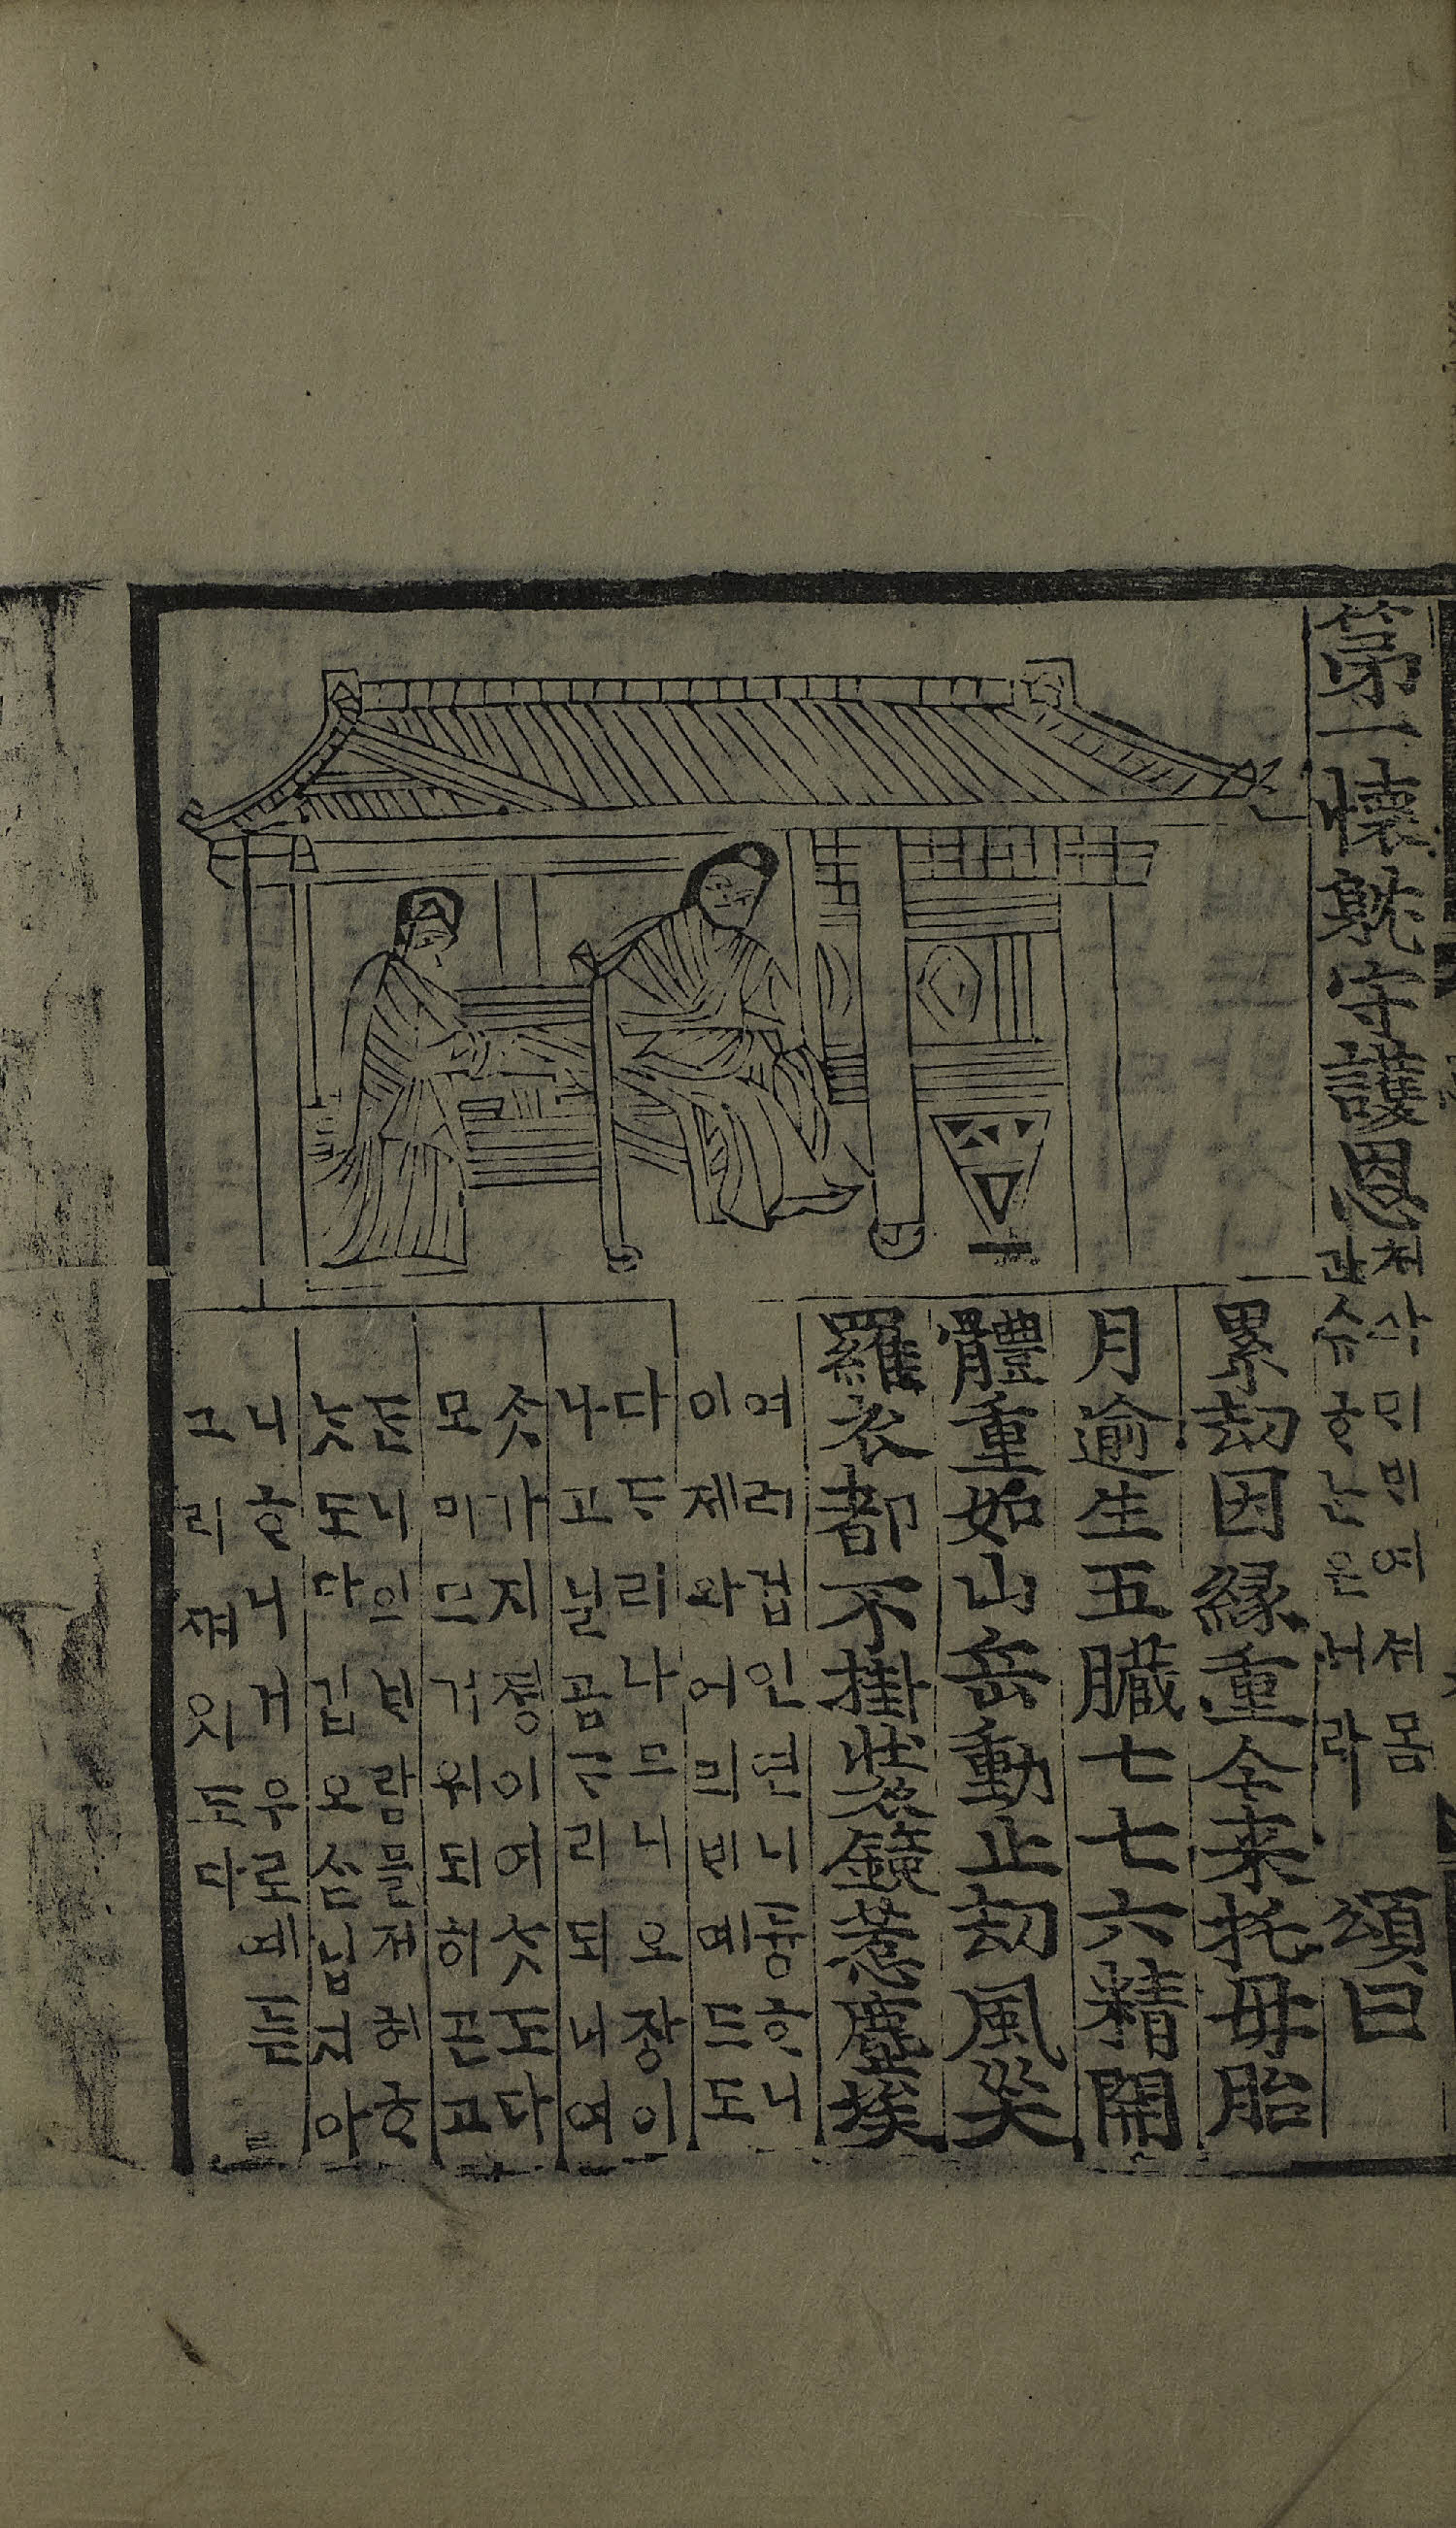 第一懷躭守護恩
처삭ᄆᆡᄇᆡ여셔몸
과슈ᄒᆞᄂᆞᆫ은녀라
頌曰
累刼因緣重今来托母胎
月逾生五臓七七六精開
體重如山岳動止刼風災
羅衣都不掛裝鏡惹塵埃
여러겁인연니듕ᄒᆞ니
이제와어믜ᄇᆡ예드도
다ᄃᆞ리나므니오장이
나고닐곱ᄂᆞ리되니여
ᄉᆞᆺ가지졍이여ᄉᆞᆺ도다
모미므거워되히곤고
ᄃᆞᆫ니의ᄇᆞ람믈저허ᄒᆞ
ᄂᆞᆺ도다깁오ᄉᆞᆷ닙디아
니ᄒᆞ니거우로예듣
그리ᄭᅧ잇도다